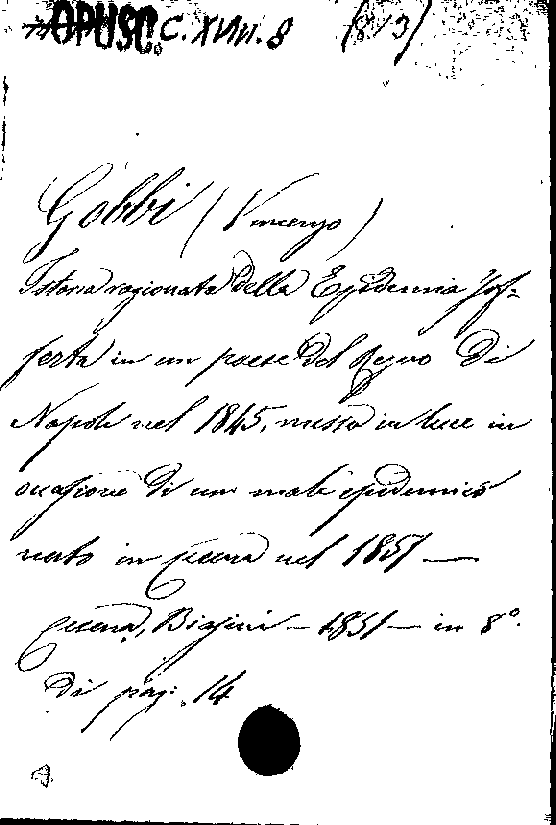 OPUSC. C. XVIII. 8 (813)
Gobbi (Vincenzo)
Istoria ragionata della Epidemia sof-
ferta in un paese del Regno di
Napoli nel 1845, messa in luce in
occasione di un male epidemico
nato in Cesena nel 1851 —
Cesena, Biasini — 1851 — in 8°.
di pag. 14